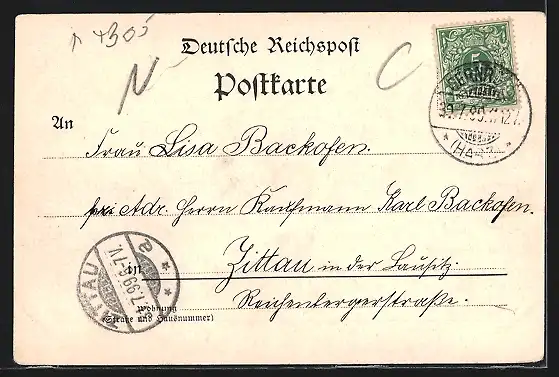 +305
N
C
Deutsche Reichspost
Postkarte
An
Frau Lisa Backofen.
Adr. Herrn Kaufmann Karl Backofen.
in Zittau in der Lausitz.
Reichenbergerstraße.
Wohnung
(Straße und Hausnummer)
ZITTAU
7.99.7-8V.
a
5
(HARZ)